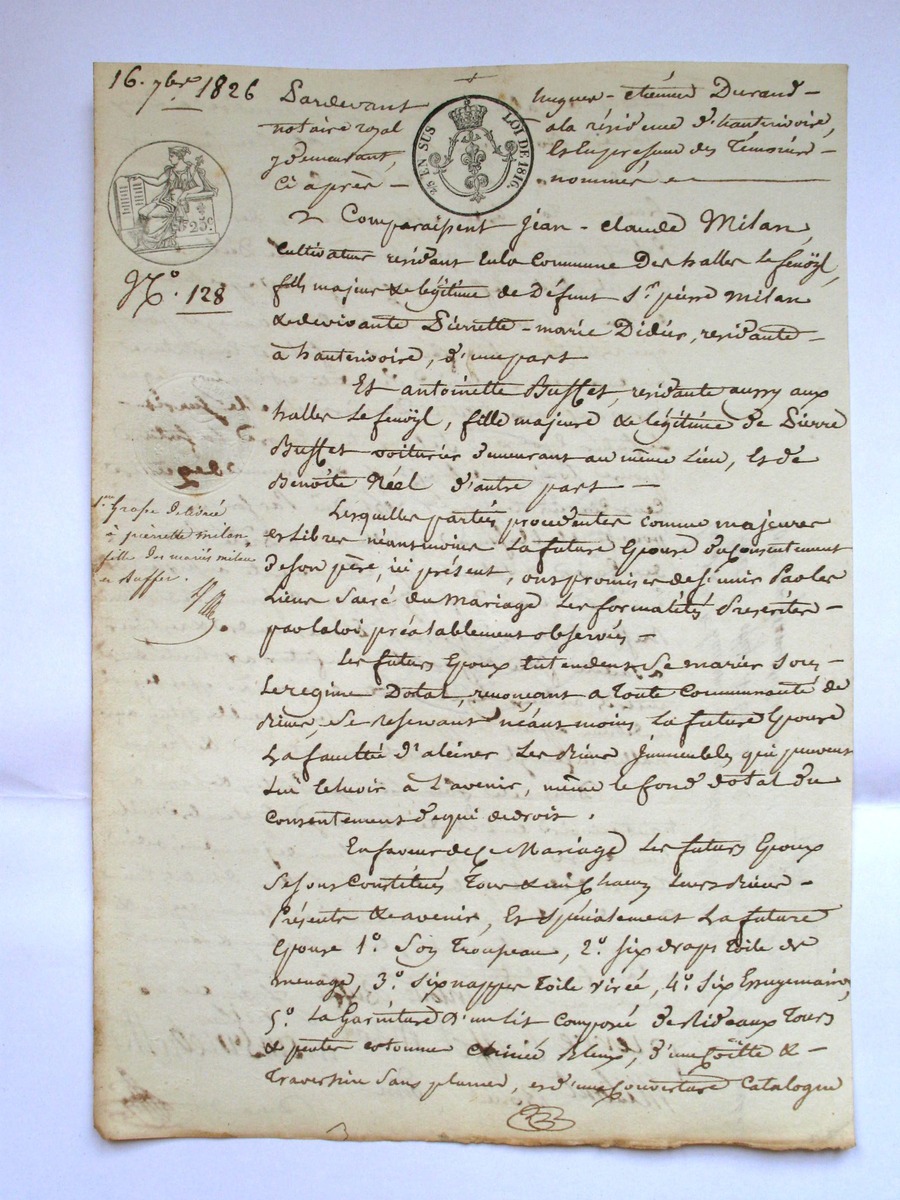 16. 7bre 1826
Pardevant hugues - étienne Durand -
notaire royal ala résidence d'hauterivoire,
y demeurant, Et En presence des Temoins -
Ci après - nommés
25 EN SUS LOI DE 1816.
25c.
No. 128
Comparaissent Jean - claude Milan,
Cultivateur résidant En la Commune Des halles Le fenöyl,
fils majeur & légitime de Défunt Sr. pierre Milan
& de vivante Pierrette - marie Didier, residante -
à hauterivoire, d'une part
Et antoinette Buffet, residante aussy aux
halles Le fenöyl, fille majeure & légitime de Pierre
Buffet voiturier demeurant au même Lieu, Et de
Benoîte Néel d'autre part -
1ere Grosse délivrée
à pierrette milan,
fille des mariés milan
et Buffet.
Lesquelles parties procedentes comme majeures
et Libres néansmoins La future Epouse du Consentement
de son père, ici présent, ont promis de s'unir Par les
Liens Sacré du Mariage Les formalités Prescrites -
par la loi préalablement observées -
Les futurs Epoux Entendent Se marier Sous -
Le regime Dotal, renonçant a Toute Communauté de
Biens, Se reservant néansmoins La future Epouse
La faculté d'aleiner Les Biens Immeubles qui peuvent
Lui Echeoir à L'avenir, même le fond dotal du
Consentement de qui de droit.
En faveur de Ce Mariage Les futurs Epoux
Se sont Constitués Tous & un Chacun Leurs Biens -
Présents & avenir, Et Spécialement La future
Epouse 1o. Son Trousseau, 2o. Six draps Toile de
menage, 3o. Six nappes toile virée, 4o. Six Essuyemains,
5o. La Garniture d'un Lit Composé de Rideaux Tours
& pentes cotonne Chinée Bleux, d'une Coëtte & -
Traversin Sans plumes, et d'une Couverture Catalogne